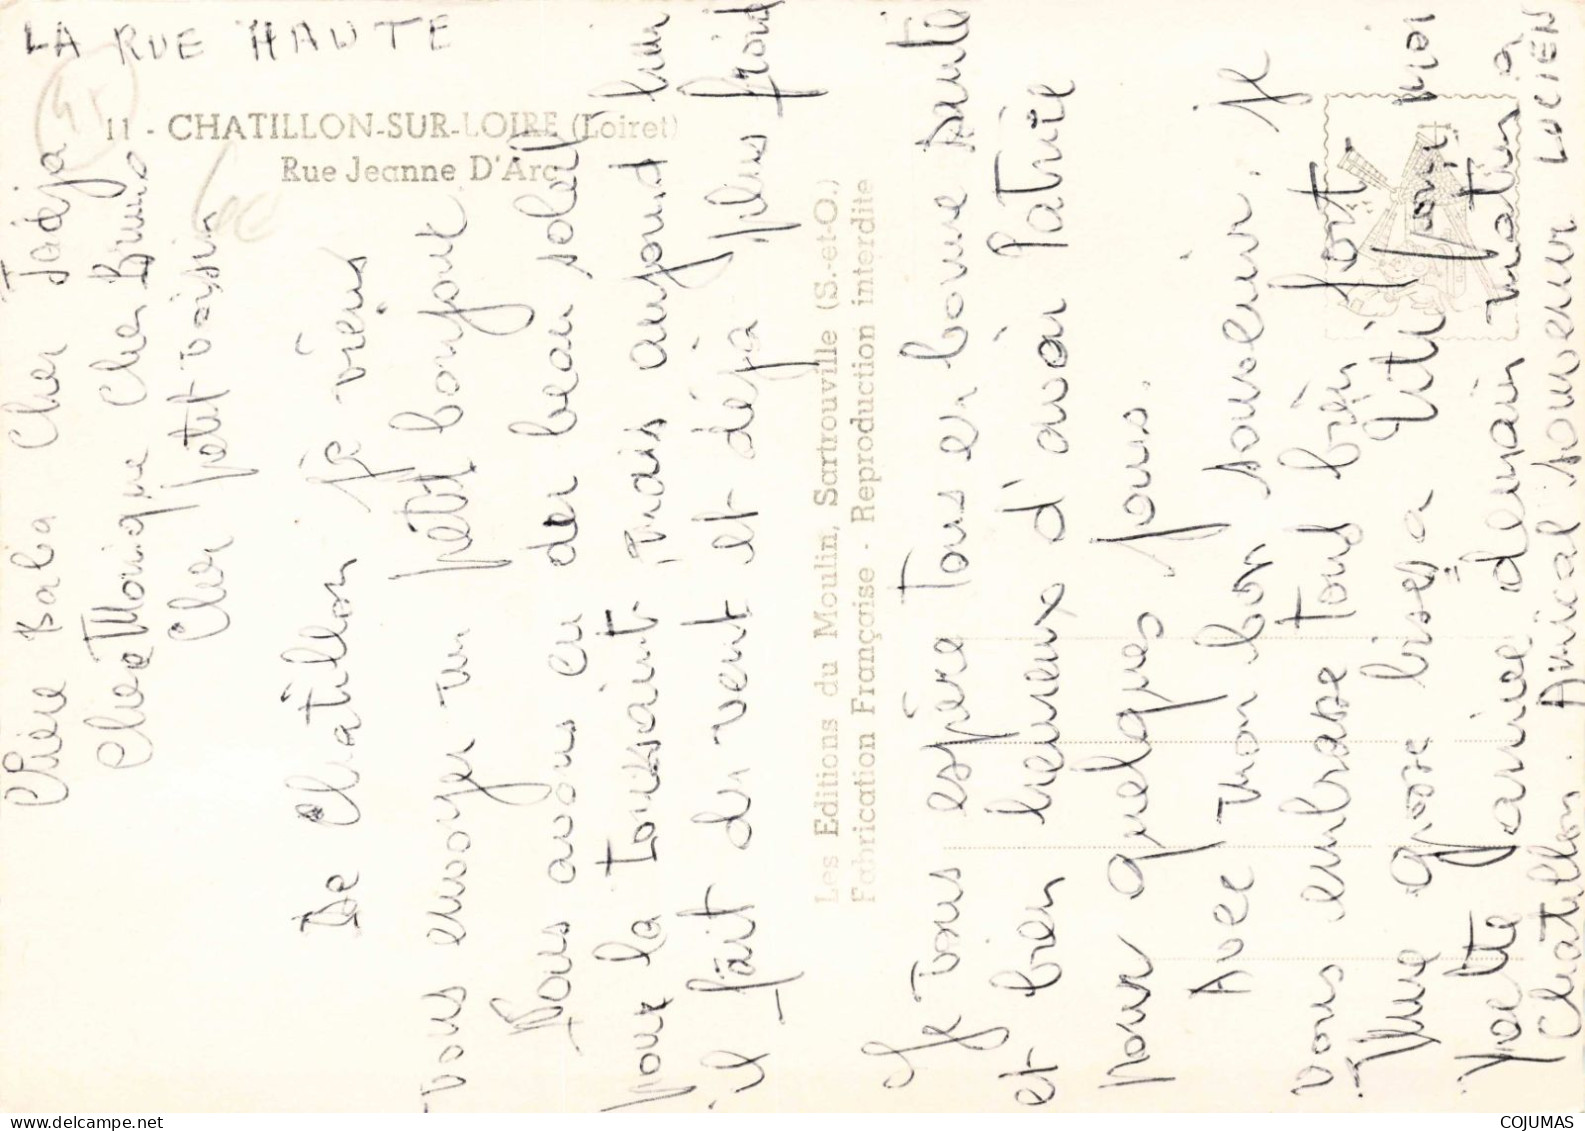 LA RUE HAUTE
45
11 - CHATILLON-SUR-LOIRE (Loiret)
Rue Jeanne D'Arc
Les Editions du Moulin, Sartrouville (S.-et-O.)
Fabrication Française - Reproduction interdite
Chère Baba Cher Jadéja
Chère Monique Cher Bruno
Cher petit voisin
De Chatillon je viens
vous envoyer un petit bonjour
Nous avons eu du beau soleil
pour la Toussaint mais aujourd'hui
il fait du vent et déjà plus froid
Je vous espère tous en bonne santé
et bien heureux d'avoir Patrice
pour quelques jours.
Avec mon bon souvenir. je
vous embrasse tous bien fort.
Une grosse bises a Titi pour moi
Yvette j'arrive demain matin a
Chatillon. Amical souvenir LUCIEN
COJUMAS